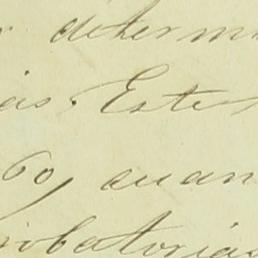 determi
as. Este
60, quan
robatorias